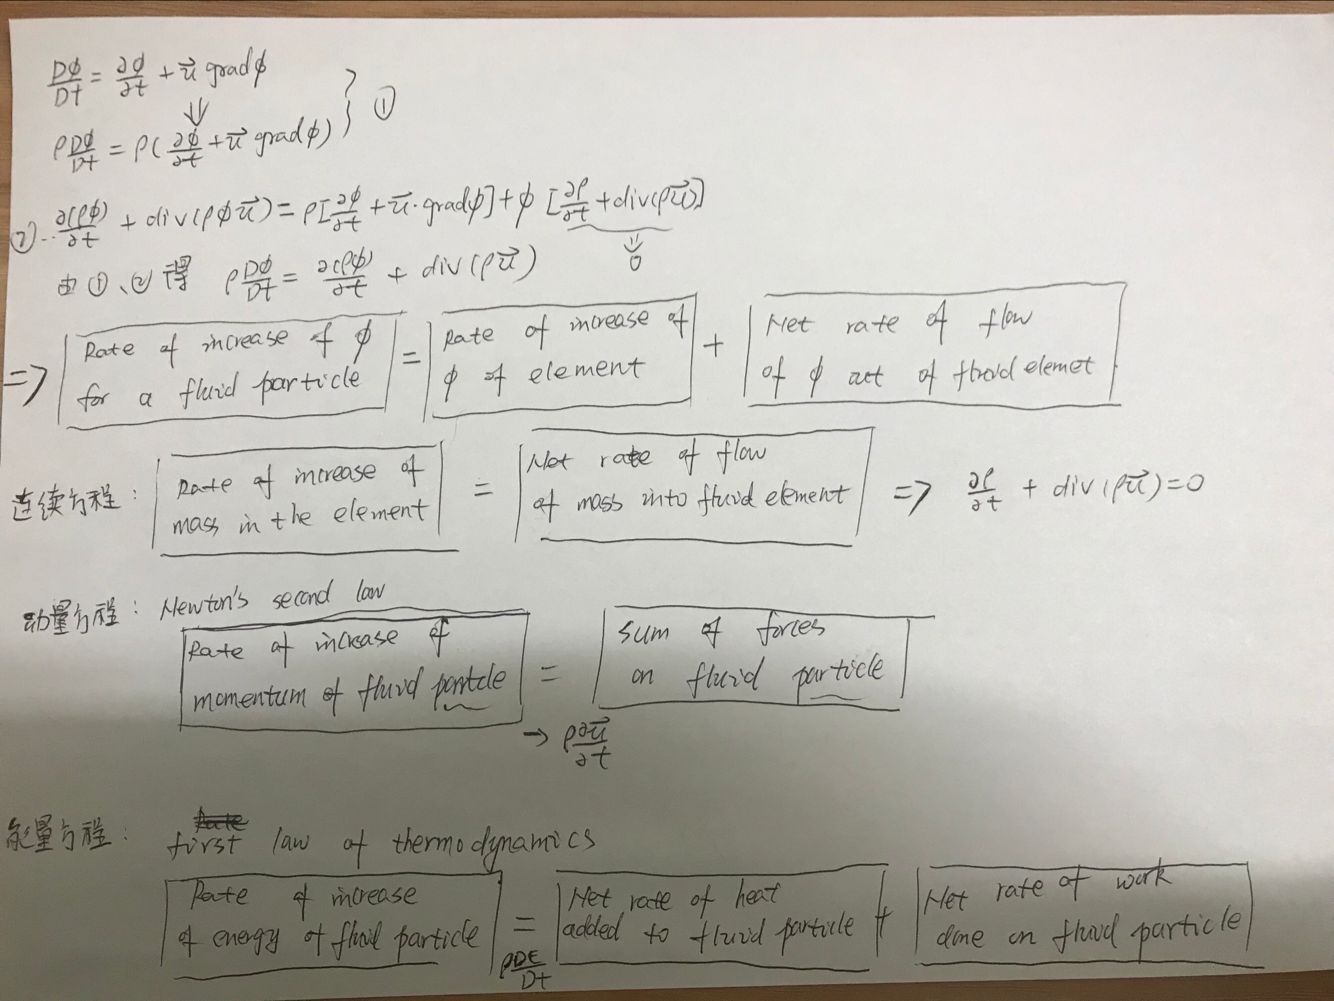 Dφ/Dt = ∂φ/∂t + u⃗ gradφ
⇓
ρ Dφ/Dt = ρ( ∂φ/∂t + u⃗ gradφ ) } ①
②.. ∂(ρφ)/∂t + div(ρφu⃗) = ρ[∂φ/∂t + u⃗·gradφ] + φ [∂ρ/∂t + div(ρu⃗)]
⇓
0
由①、②得 ρ Dφ/Dt = ∂(ρφ)/∂t + div(ρu⃗)
=> Rate of increase of φ for a fluid particle = Rate of increase of φ of element + Net rate of flow of φ out of fluid elemet
连续方程: Rate of increase of mass in the element = Net rate of flow of mass into fluid element => ∂ρ/∂t + div(ρu⃗)=0
动量方程: Newton's second law
Rate of increase of momentum of fluid particle = sum of forces on fluid particle
→ ρ ∂u⃗/∂t
能量方程: first law of thermodynamics
Rate of increase of energy of fluid particle = Net rate of heat added to fluid particle + Net rate of work done on fluid particle
ρDE/Dt